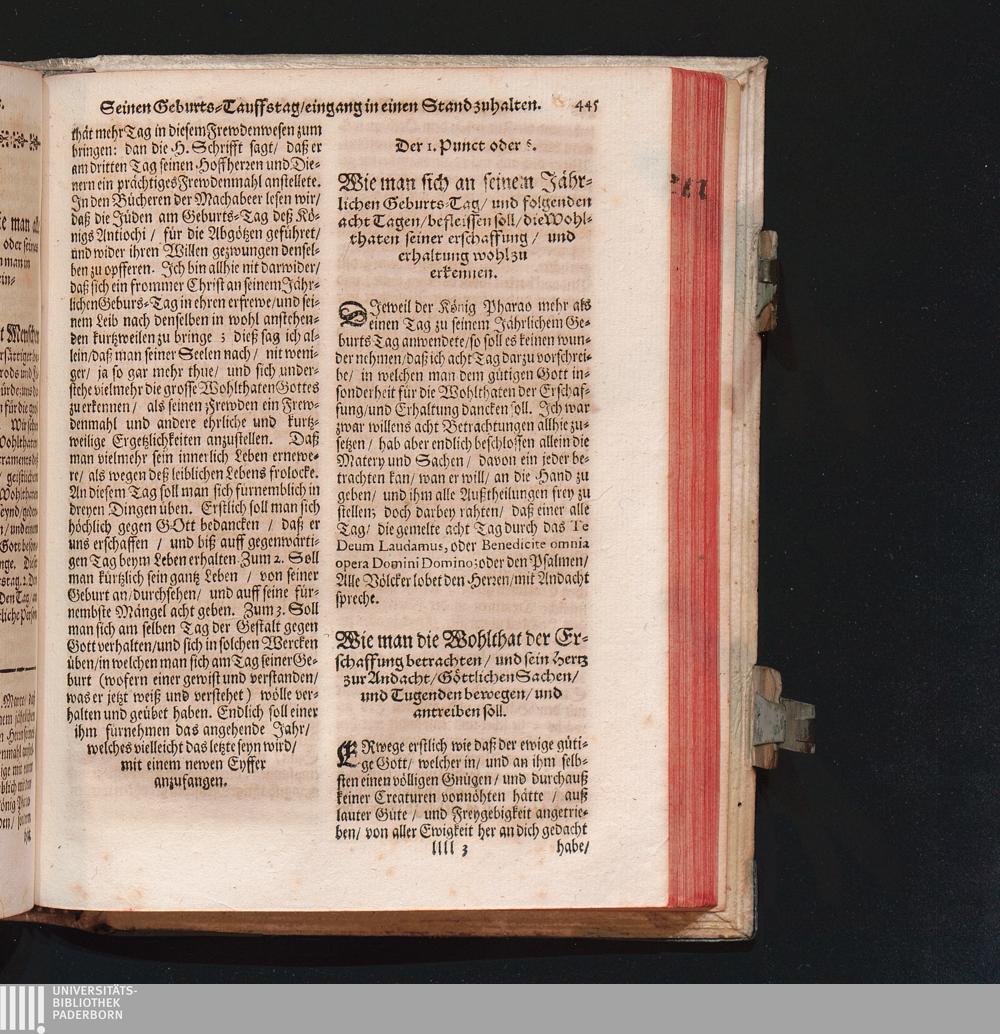 Seinen Geburts-Tauffstag/eingang in einen Stand zuhalten. 445
thät mehr Tag in diesem Frewdenwesen zum
bringen: dan die H. Schrifft sagt/ daß er
am dritten Tag seinen Hoffherzen und Die-
nern ein prächtiges Frewdenmahl anstellete.
In den Bücheren der Machabeer lesen wir/
daß die Jüden am Geburts-Tag deß Kö-
nigs Antiochi / für die Abgötzen geführet/
und wider ihren Willen gezwungen densel-
ben zu opfferen. Ich bin allhie nit darwider/
daß sich ein frommer Christ an seinem Jähr-
lichen Geburs-Tag in ehren erfrewe/und sei-
nem Leib nach denselben in wohl anstehen-
den kurtzweilen zu bringe ; dieß sag ich al-
lein/daß man seiner Seelen nach / nit weni-
ger/ ja so gar mehr thue/ und sich under-
stehe vielmehr die grosse Wohlthaten Gottes
zu erkennen / als seinen Frewden ein Frew-
denmahl und andere ehrliche und kurtz-
weilige Ergetzlichkeiten anzustellen. Daß
man vielmehr sein innerlich Leben ernewe-
re/ als wegen deß leiblichen Lebens frolocke.
An diesem Tag soll man sich fürnemblich in
dreyen Dingen üben. Erstlich soll man sich
höchlich gegen GOtt bedancken / daß er
uns erschaffen / und biß auff gegenwärti-
gen Tag beym Leben erhalten. Zum 2. Soll
man kürtzlich sein gantz Leben / von seiner
Geburt an/durchsehen/ und auff seine für-
nembste Mängel acht geben. Zum 3. Soll
man sich am selben Tag der Gestalt gegen
Gott verhalten/und sich in solchen Wercken
üben/in welchen man sich am Tag seiner Ge-
burt (wofern einer gewist und verstanden/
was er jetzt weiß und verstehet) wölle ver-
halten und geübet haben. Endlich soll einer
ihm fürnehmen das angehende Jahr/
welches vielleicht das letzte seyn wird/
mit einem newen Eyffer
anzufangen.
Der 1. Punct oder §.
Wie man sich an seinem Jähr-
lichen Geburts-Tag/ und folgenden
acht Tagen/ befleissen soll/ die Wohl-
thaten seiner erschaffung / und
erhaltung wohl zu
erkennen.
DIeweil der König Pharao mehr als
einen Tag zu seinem Jährlichem Ge-
burts Tag anwendete/so soll es keinen wun-
der nehmen/daß ich acht Tag darzu vorschrei-
be/ in welchen man dem gütigen Gott in-
sonderheit für die Wohlthaten der Erschaf-
fung/und Erhaltung dancken soll. Ich war
zwar willens acht Betrachtungen allhie zu-
setzen/ hab aber endlich beschlossen allein die
Matery und Sachen/ davon ein jeder be-
trachten kan/ wan er will/ an die Hand zu
geben/ und ihm alle Außtheilungen frey zu
stellen; doch darbey rahten/ daß einer alle
Tag/ die gemelte acht Tag durch das Te
Deum Laudamus, oder Benedicite omnia
opera Domini Domino; oder den Psalmen/
Alle Völcker lobet den Herren/mit Andacht
spreche.
Wie man die Wohlthat der Er-
schaffung betrachten/ und sein Hertz
zur Andacht/ Göttlichen Sachen/
und Tugenden bewegen/ und
antreiben soll.
ERwege erstlich wie daß der ewige güti-
ge Gott/ welcher in/ und an ihm selb-
sten einen völligen Gnügen/ und durchauß
keiner Creaturen vonnöhten hätte / auß
lauter Güte/ und Freygebigkeit angetrie-
ben/ von aller Ewigkeit her an dich gedacht
llll 3 habe/
UNIVERSITÄTS-
BIBLIOTHEK
PADERBORN